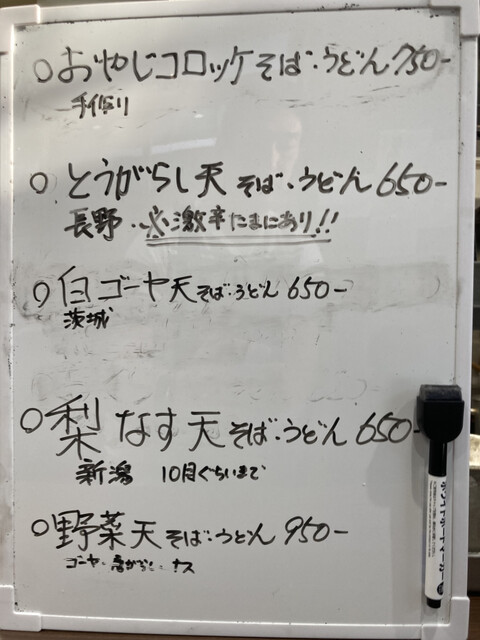 ○おやじコロッケそば・うどん750-
手作り
○とうがらし天そば・うどん650-
長野・※激辛たまにあり!!
○白ゴーヤ天そば・うどん650-
茨城
○梨なす天そば・うどん650-
新潟 10月ぐらいまで
○野菜天そば・うどん950-
ゴーヤ・唐がらし・ナス
ホワイトボードマーカー